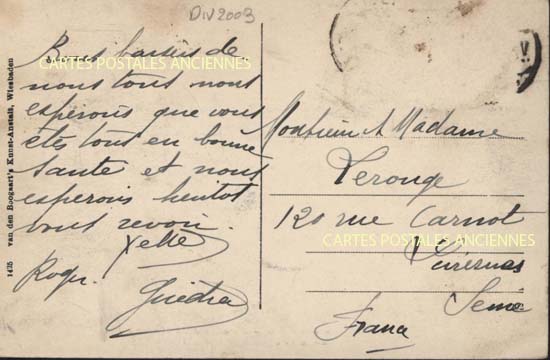 DIV2003
Bons baisers de
CARTES POSTALES ANCIENNES
nous tous nous
espérons que vous
êtes tous en bonne
sante et nous
esperons bientot
vous revoir.
Roger.
1425 van den Boogaart's Kunst-Anstalt, Wiesbaden
V
Monsieur et Madame
Lerouge
120 rue Carnot
CARTES POSTALES ANCIENNES
Suresnes
Seine
France